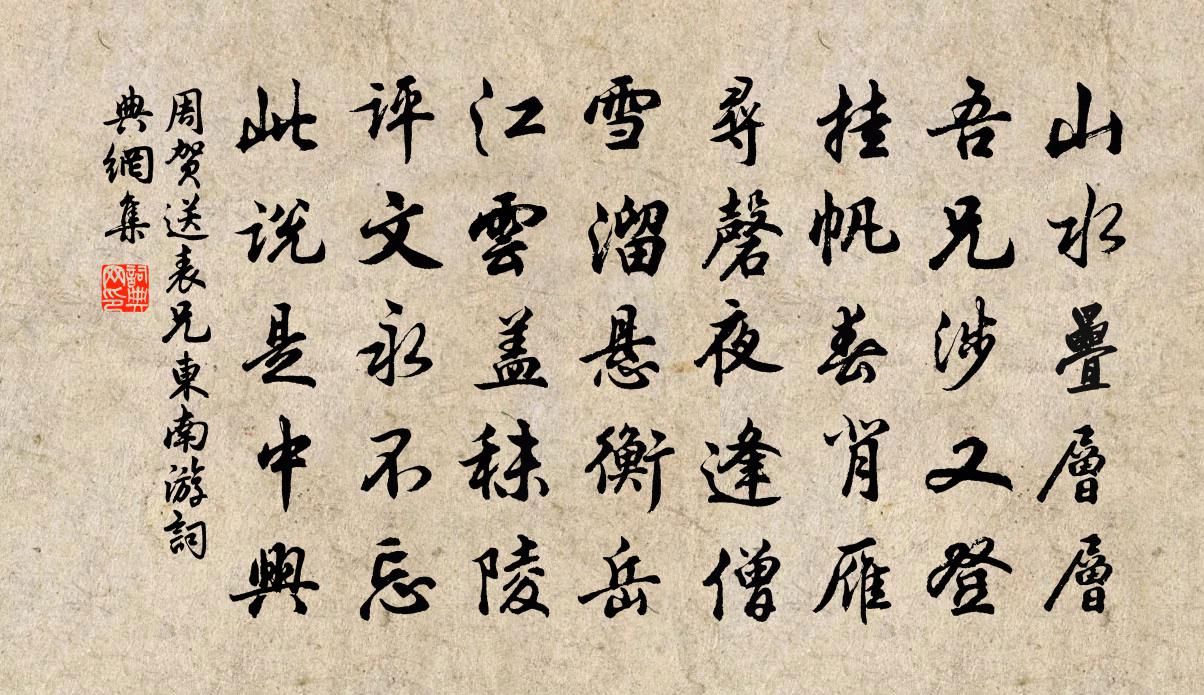 山水疊層層
吾兄涉又登
挂帆春肖雁
尋磬夜逢僧
雪溜悬衡岳
江雲盖秣陵
评文永不忘
此说是中興
周贺送表兄東南游詞
典網集
詞典網印